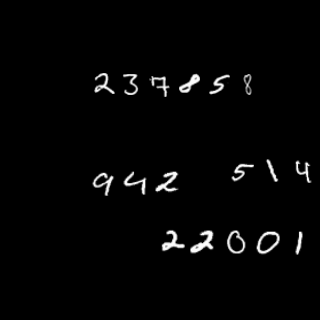 237858
942 514
22001